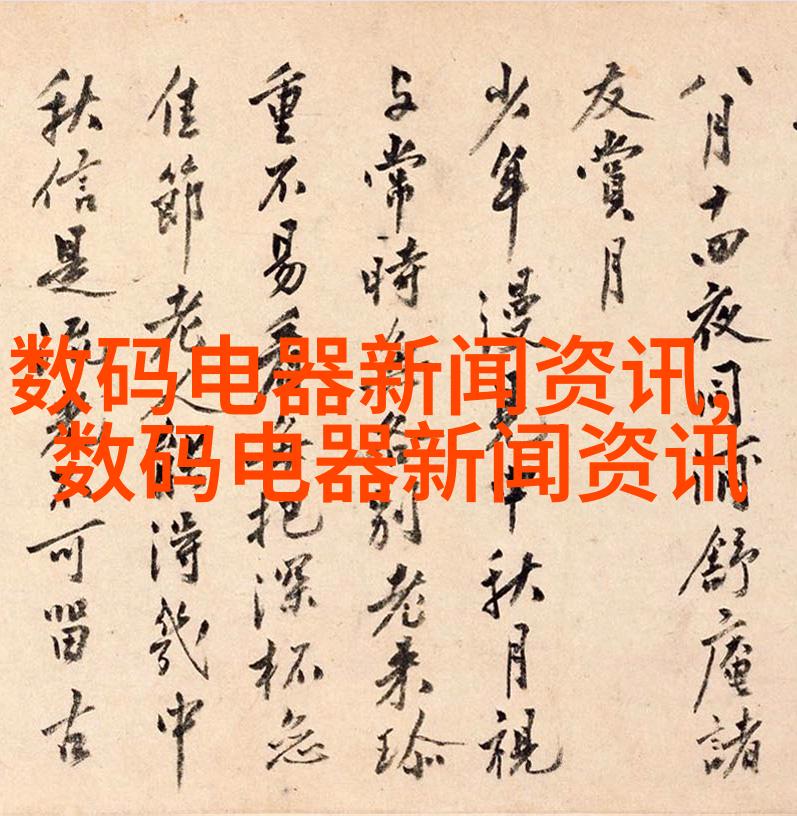 数码电器新闻资讯,
数码电器新闻资讯
八月十四夜同舒庵諸
友賞月
少年漫見中秋月視
与常時別老来珍
重不易看把深杯
佳節老人得幾中
秋信是流不可留古